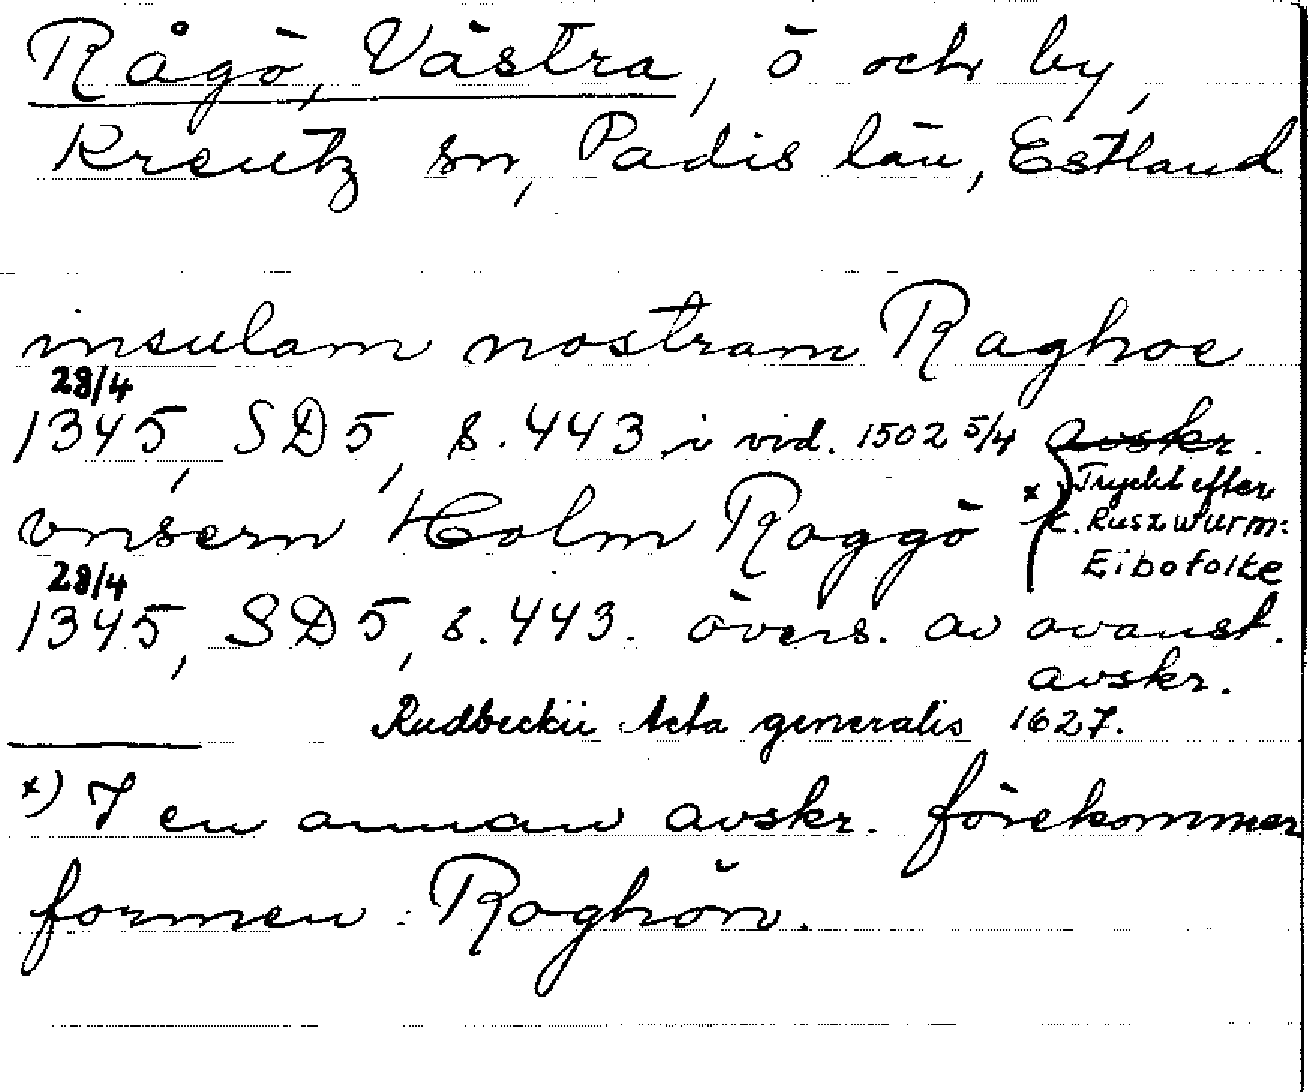 Rågö, Västra, ö och by,
Kreutz sn, Padis län, Estland
insulam nostram Raghoe
28/4
1345, SD 5, s. 443 i vid. 1502 5/4 avskr.
Tryckt efter
vnsern Holm Raggö x) C. Ruszwurm:
Eibofolke
28/4
1345, SD 5, s. 443. övers. av ovanst.
avskr.
Rudbeckii Acta generalis 1627.
x) I en annan avskr. förekommer
formen: Raghön.